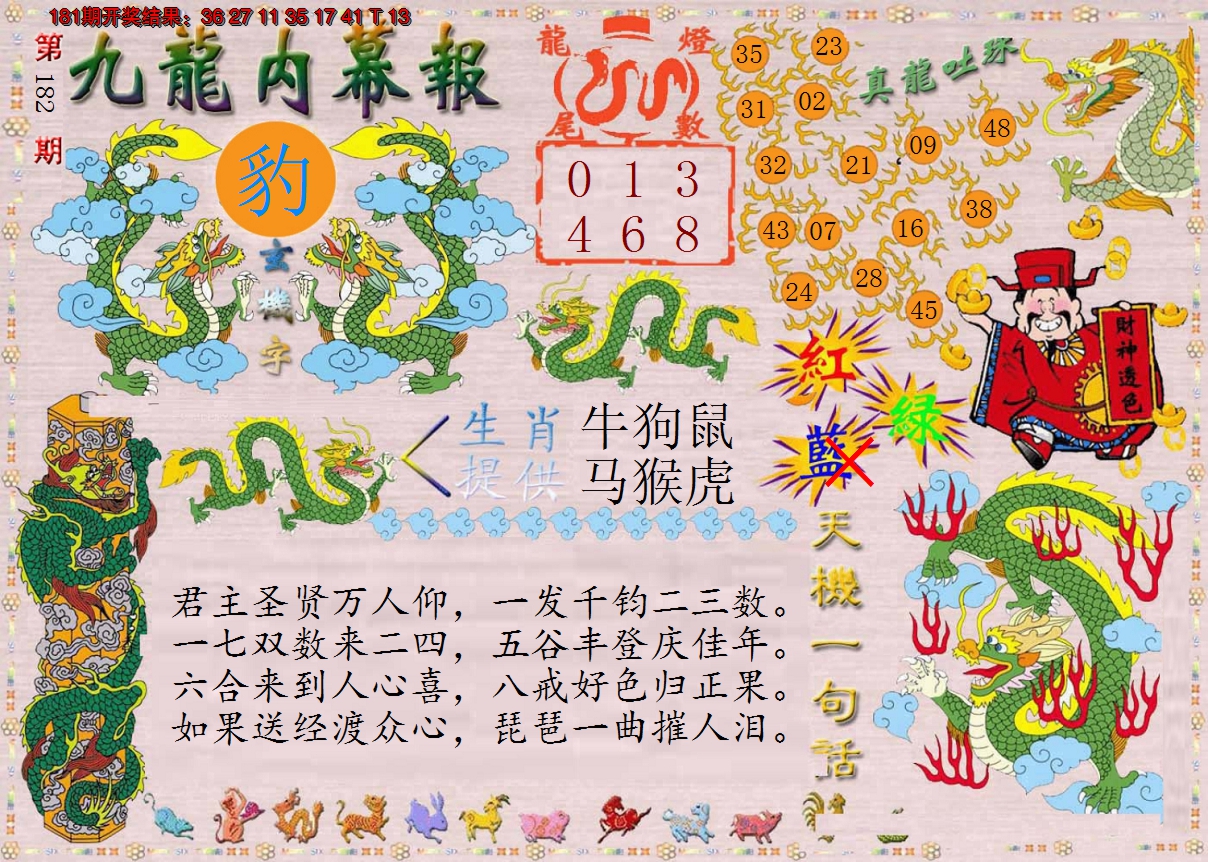 181期开奖结果：36 27 11 35 17 41 T 13
第182期
九龍内幕報
豹
玄機字
龍燈
尾數
0 1 3
4 6 8
真龍吐珠
35 23
31 02
09 48
32 21
38
43 07 16
28
24
45
財神透色
紅
綠
藍
生肖 牛狗鼠
提供 马猴虎
君主圣贤万人仰，一发千钧二三数。
一七双数来二四，五谷丰登庆佳年。
六合来到人心喜，八戒好色归正果。
如果送经渡众心，琵琶一曲摧人泪。
天機一句話